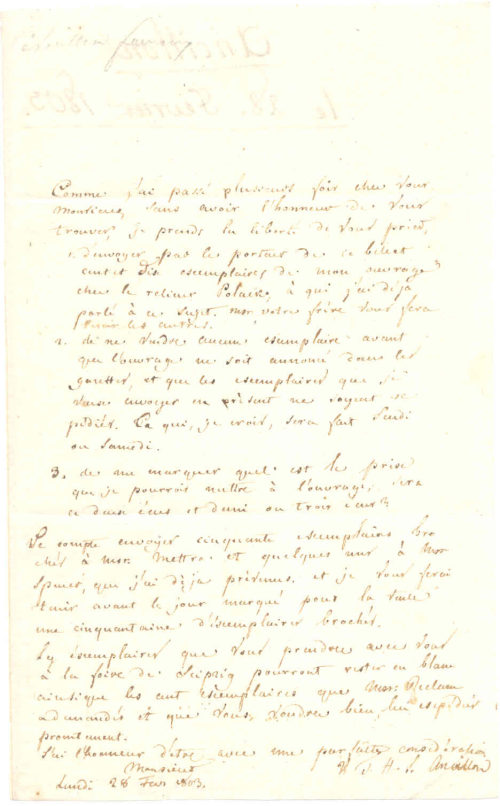 Ancillon
le 28. Fevrier 1803.
Comme j'ai passé plusieurs foir cher Vour
Monsieur, sans avoir l'honneur de Vour
trouver, je prends la liberté de Vour prier,
1. d'envoyer par le porteur de ce billet
cent et dix esemplaires de mon ouvrage
cher le relieur Polack, à qui j'ai déjà
parlé à ce sujet. Mor votre frère Vour fera
tenir les autres.
2. de ne vendre aucun esemplaire avant
que l'ouvrage ne soit annoncé dans les
gazettes, et que les esemplaires que je
envoyer en présent ne soyent
pédiés. Ce qui, je croir, sera fait Jeudi
ou Samedi.
3. de me marquer quel est le prise
que je pourrois mettre à l'ouvrage; sera
ce deuse écus et demi ou troir écur?
Je compte envoyer cinquante esemplaires bro
chés à Mor. Mettra et quelques unr à Mor
que j'ai déja prévenus. et je Vour ferai
tenir avant le jour marqué pour la vente
une cinquantaine d'esemplairer brochés.
Les esemplaires que Vour prendrer avec Vour
à la foire de Leipzig pourront rester en blanc
ainsique les cent esemplaires que Mor: Reclam
a demandés et que Vous, voudrer bien, lui espédier
promtement.
J'ai l'honneur d'être avec une parfaite considération
Monsieur
Ancillon
Lundi 28 Fevr 1803.